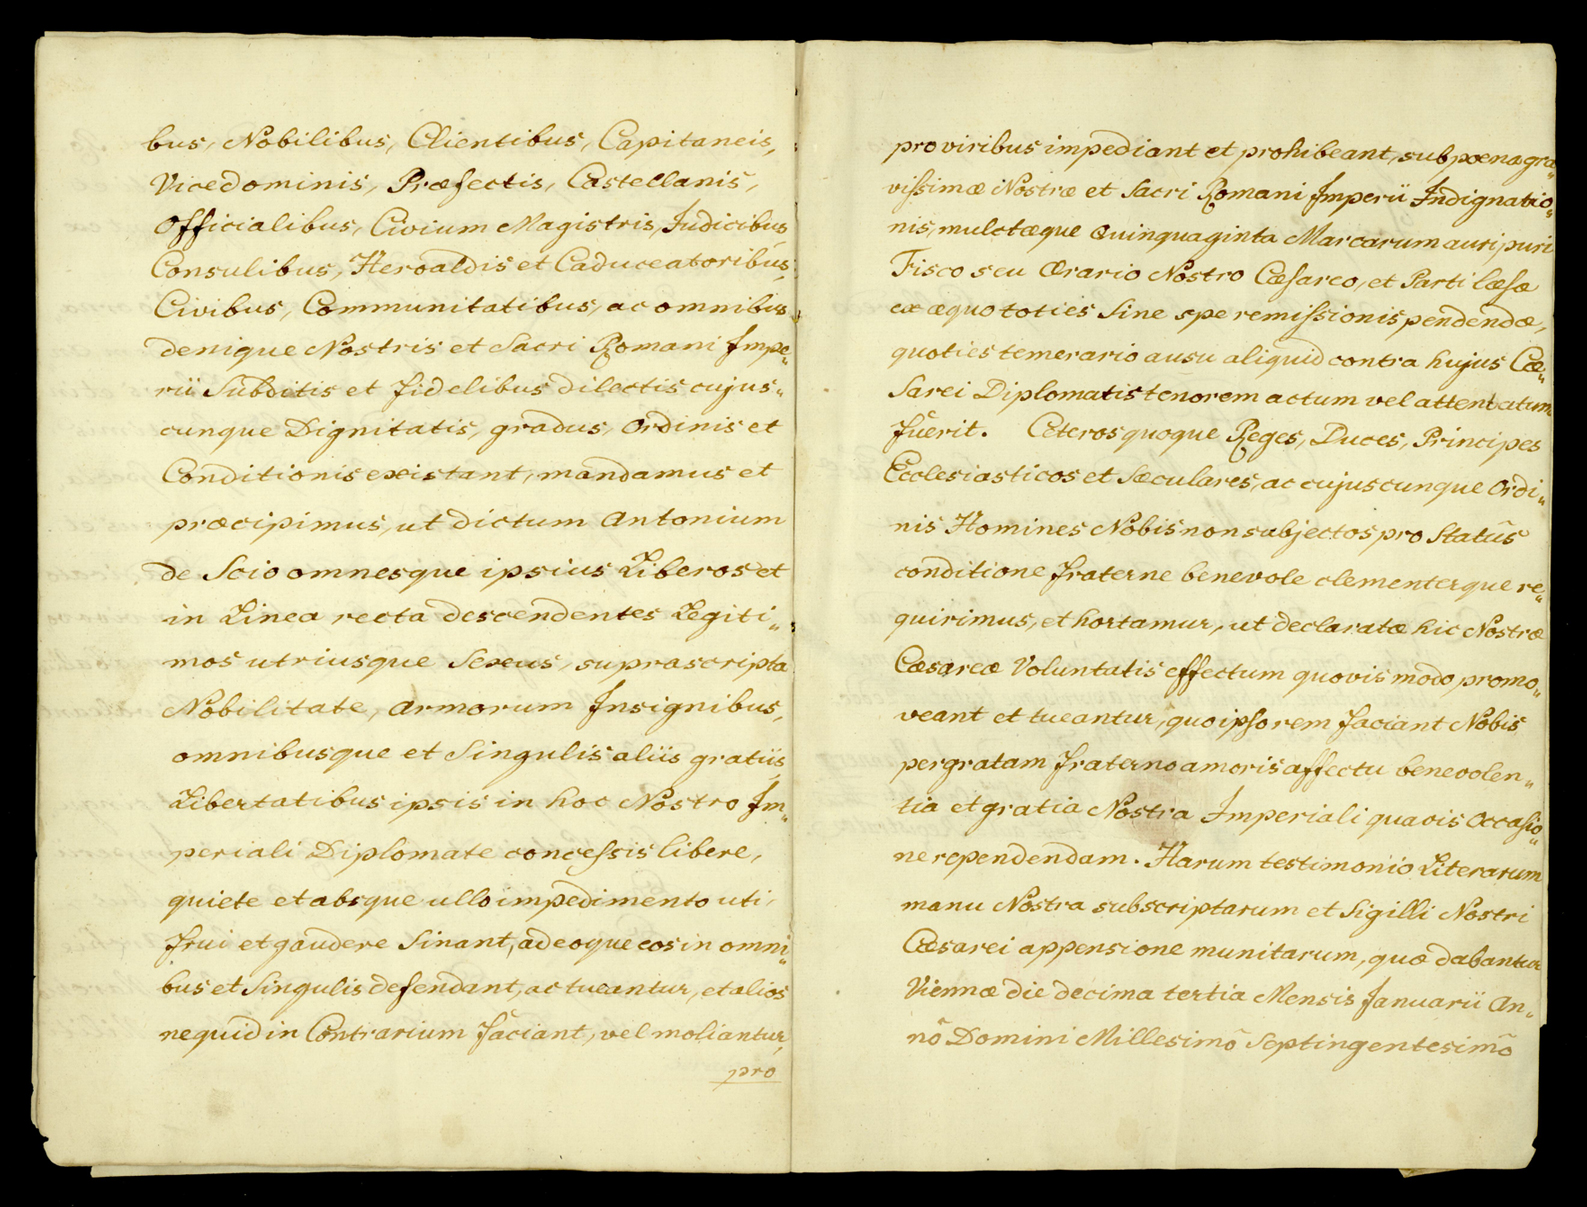 bus, Nobilibus, Clientibus, Capitaneis,
Vicedominis, Præfectis, Castellanis,
Officialibus, Civium Magistris, Judicibus
Consulibus, Heroaldis et Caduceatoribus,
Civibus, Communitatibus, ac omnibus
denique Nostris et Sacri Romani Impe„
rii Subditis et fidelibus dilectis cujus„
cunque Dignitatis, gradus, Ordinis et
Conditionis existant, mandamus et
præcipimus, ut dictum Antonium
de Scio omnesque ipsius Liberos et
in Linea recta descendentes Legiti„
mos utriusque Sexus, suprascripta
Nobilitate, Armorum Insignibus,
omnibusque et Singulis aliis gratiis,
Libertatibus ipsis in hoc Nostro Im„
periali Diplomate concessis libere,
quiete et absque ullo impedimento uti,
frui et gaudere Sinant, adeoque eos in omni„
bus et Singulis defendant, ac tueantur, et alios
nequid in Contrarium faciant, vel moliantur,
pro
pro viribus impediant et prohibeant, sub poena gra„
vissimæ Nostræ et Sacri Romani Imperii Indignatio„
nis, mulctæque Quinquaginta Marcarum auri puri
Fisco seu Ærario Nostro Cæsareo, et Parti læsæ
ex æquo toties Sine spe remissionis pendendæ,
quoties temerario ausu aliquid contra hujus Cæ„
Sarei Diplomatis tenorem actum vel attentatum
fuerit. Ceteros quoque Reges, Duces, Principes
Ecclesiasticos et Sæculares, ac cujuscunque Ordi„
nis Homines Nobis non subjectos pro Statûs
conditione fraterne benevole clementerque re„
quirimus, et hortamur, ut declaratæ hic Nostræ
Cæsareæ Voluntatis effectum quovis modo promo„
veant et tueantur, quo ipso rem faciant Nobis
pergratam fraterno amoris affectu benevolen„
tia et gratia Nostra Imperiali quavis Occasio„
ne rependendam. Harum testimonio Literarum
manu Nostra subscriptarum et Sigilli Nostri
Cæsarei appensione munitarum, quæ dabantur
Viennæ die decima tertia Mensis Januarii An„
nô Domini Millesimô Septingentesimô